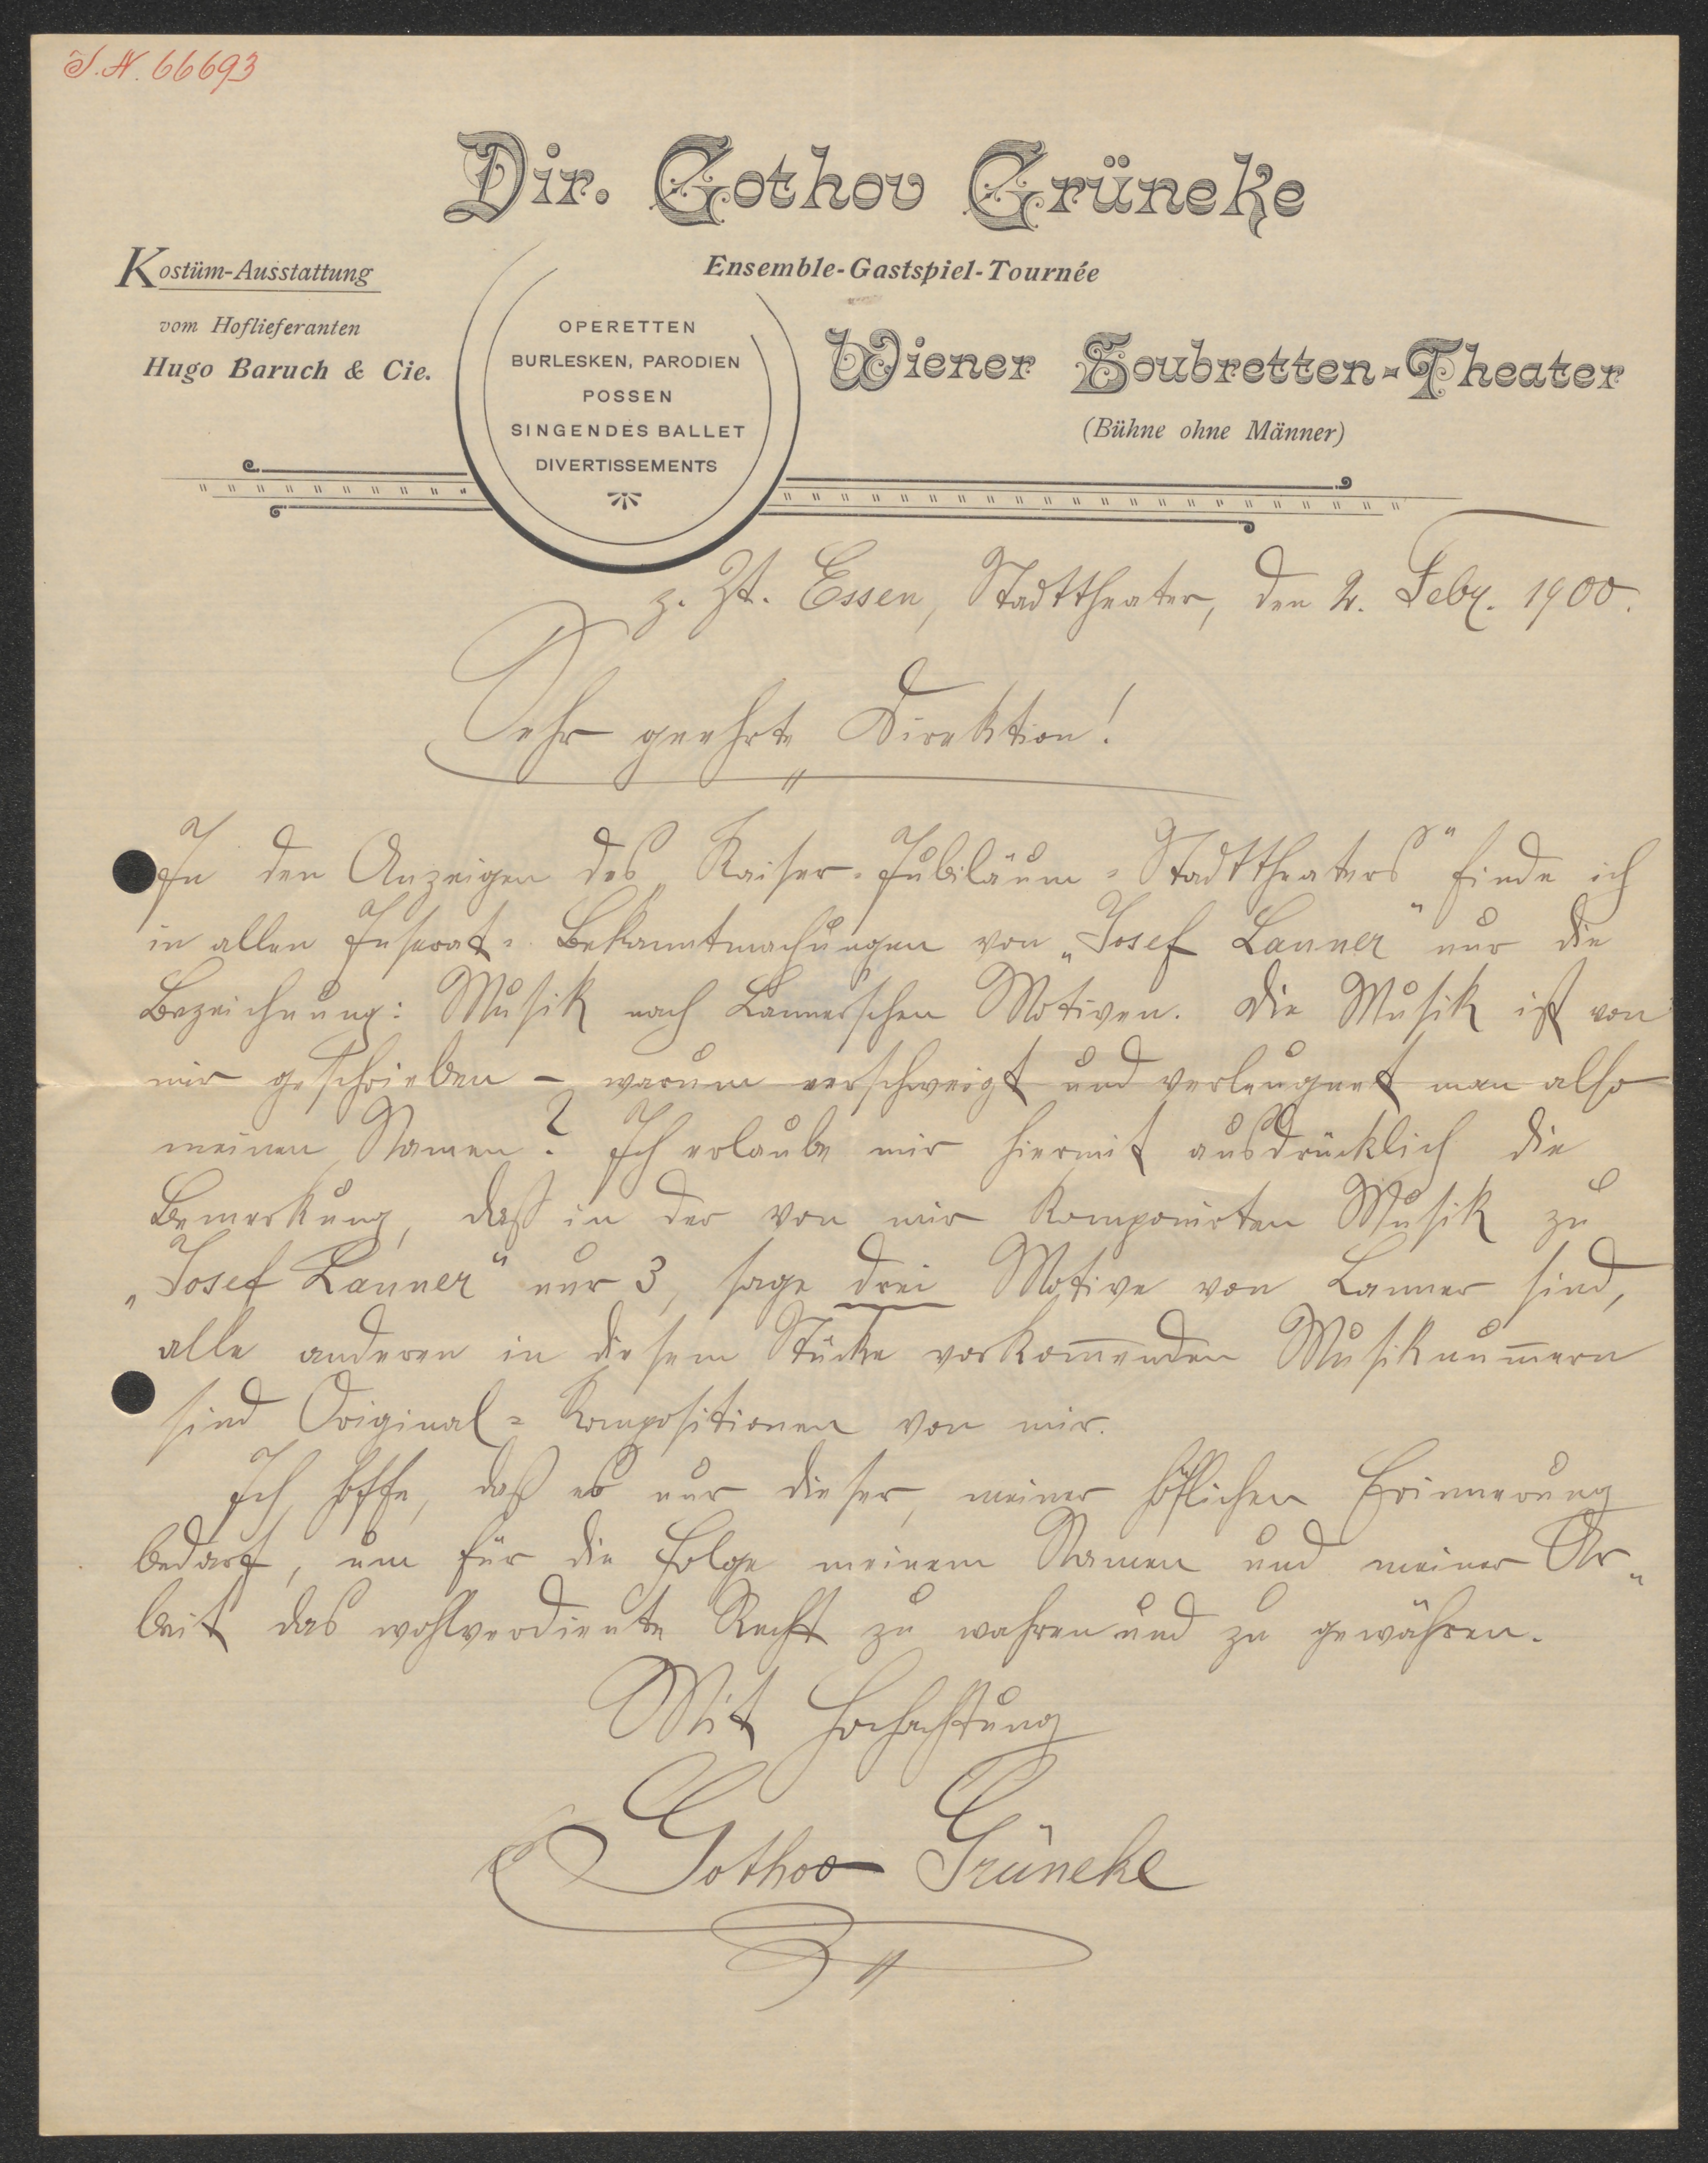 I.N. 66693
Dir. Gothov Grüneke
Kostüm-Ausstattung
vom Hoflieferanten
Hugo Baruch & Cie.
OPERETTEN
BURLESKEN, PARODIEN
POSSEN
SINGENDES BALLET
DIVERTISSEMENTS
Ensemble-Gastspiel-Tournée
Wiener Soubretten-Theater
(Bühne ohne Männer)
z. Zt. Essen, Stadttheater, den 2. Febr. 1900.
Sehr geehrte Direktion!
In den Anzeigen des „Kaiser-Jubiläum-Stadttheaters“ finde ich
in allen Inserat-Bekanntmachungen von „Josef Lanner“ nur die
Bezeichnung: Musik nach Lanner'schen Motiven. Die Musik ist von
mir geschrieben – warum verschweigt und verleugnet man also
meinen Namen? Ich erlaube mir hiermit ausdrücklich die
Bemerkung, daß in der von mir komponirten Musik zu
„Josef Lanner“ nur 3, sage drei Motive von Lanner sind,
alle anderen in diesem Stücke vorkom̅enden Musiknum̅ern
sind Original-Kompositionen von mir.
Ich hoffe, daß es nur dieser, meiner höflichen Erinnerung
bedarf, um für die Folge meinem Namen und meiner Ar-
beit das wohlverdiente Recht zu wahren und zu gewähren.
Mit Hochachtung
Gothov Grüneke